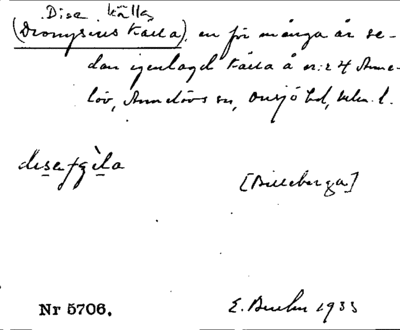 Dise källa
(Dionysius Källa) en för många år se-
dan igenlagd källa å nr: 24 Anne-
löv, Annelövs sn, Onsjö hd, Mlm. l.
[Billeberga]
Nr 5706.
E. 1933